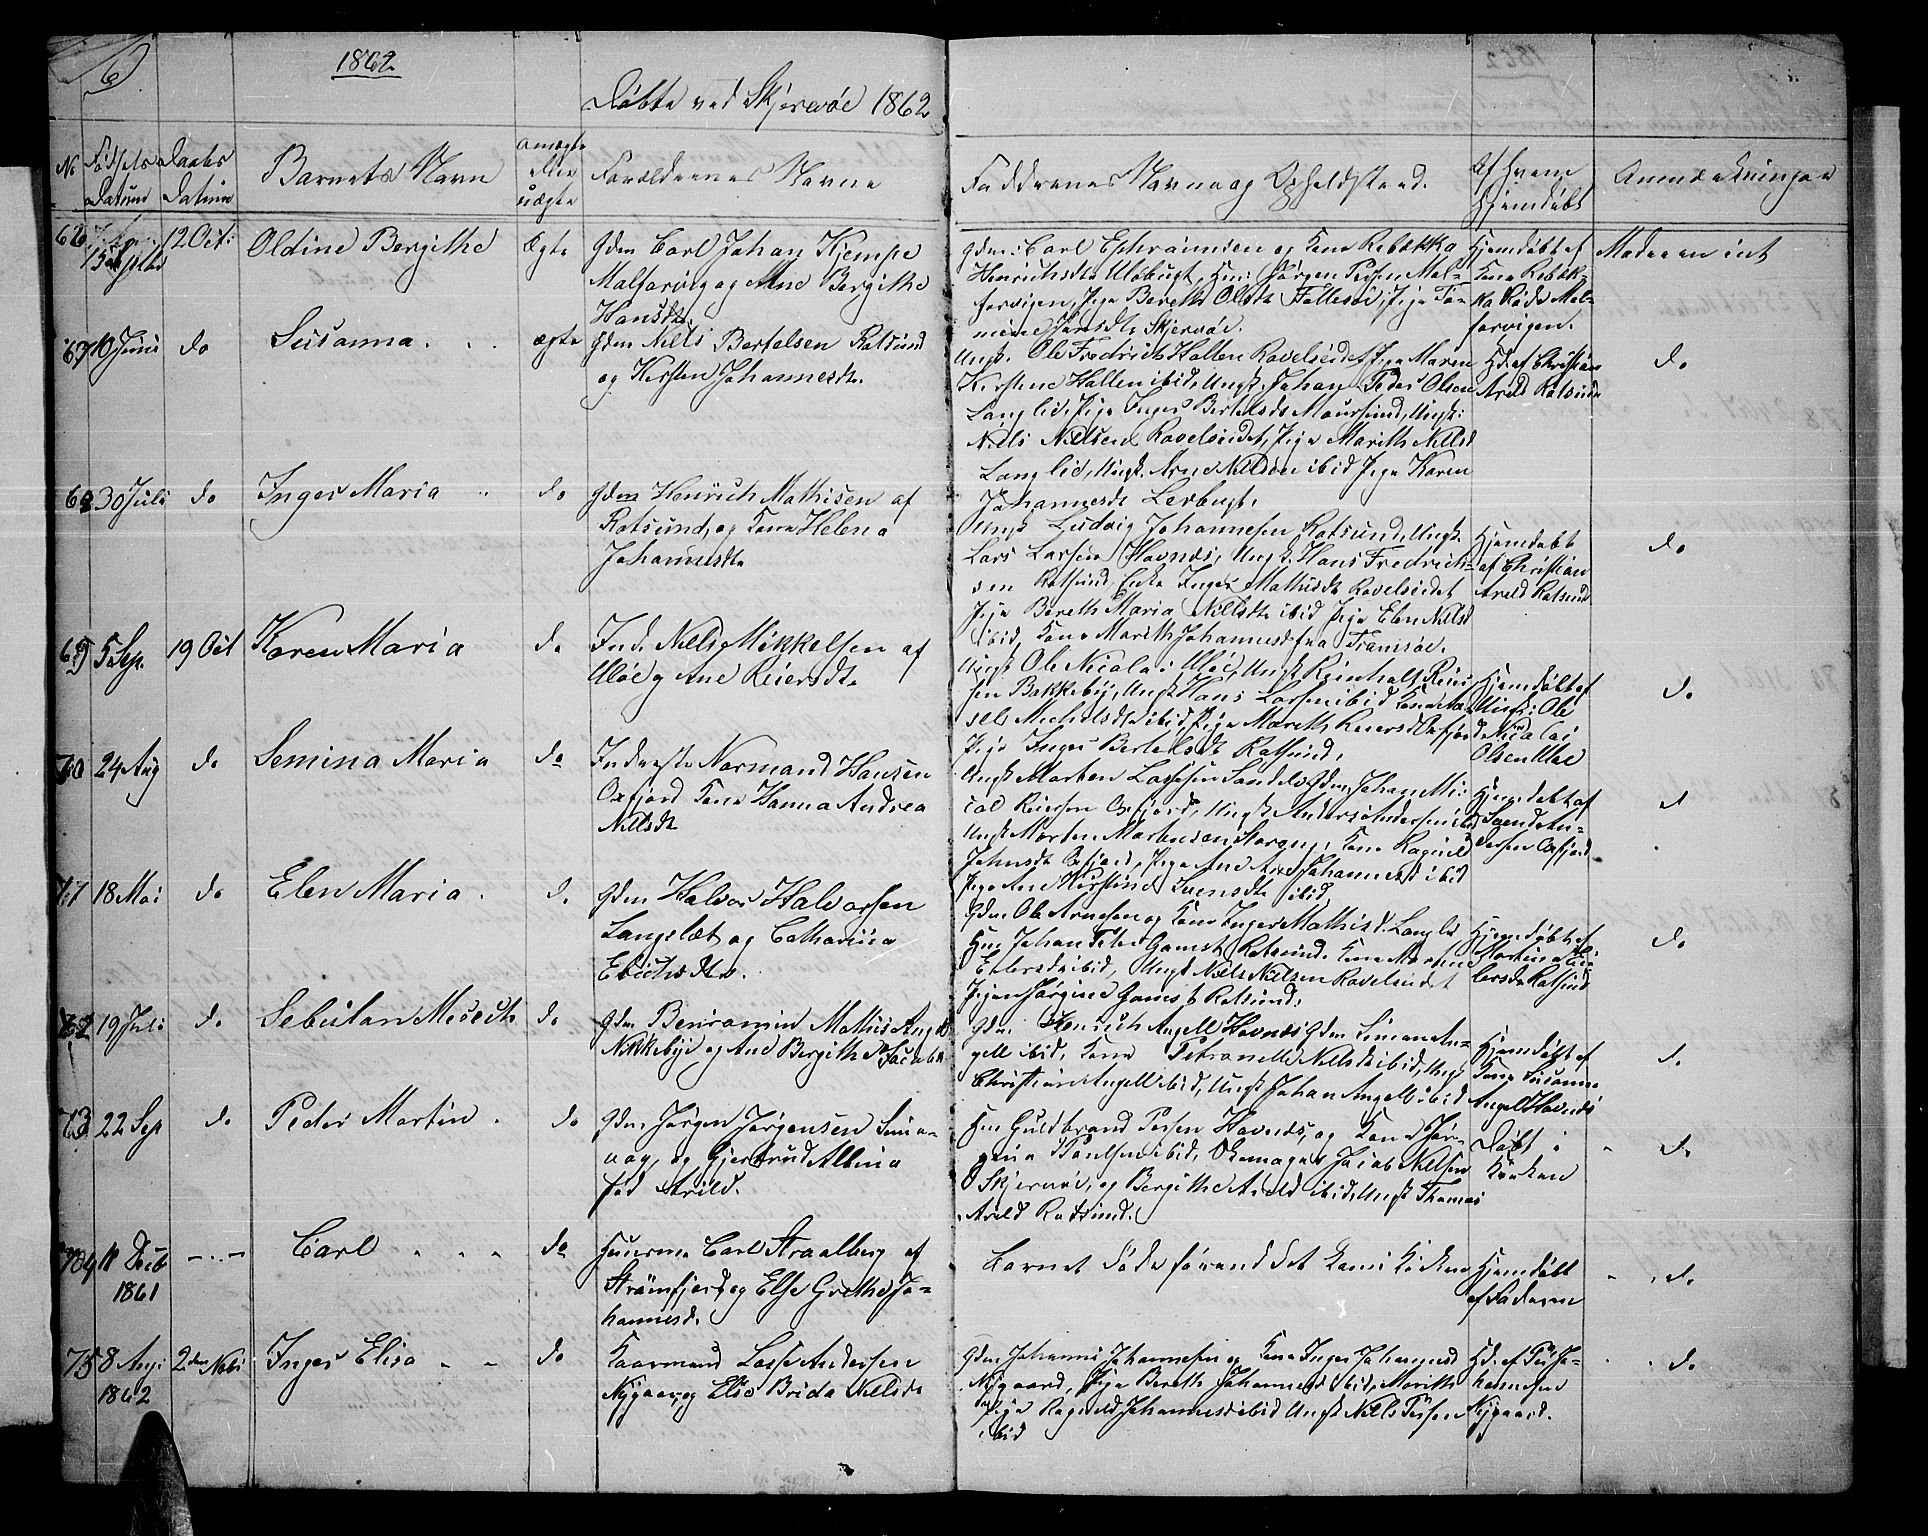 6
1862
Døbte ved Skjervøe 1862
No
Fødsels Datum
Daabs Datum
Barnets Navn
ægte eller uægte
Forældrenes Navne
Faddernes Navne og Opholdsted.
Af hvem Hjemdøbt
Anmærkninger
66
12 Oct:
Oldine Bergithe
Ægte
Gdm Carl Johan Kjempe
og Ane Bergithe
Hansdtr
Gdm: Carl Ephraimsen og Kona Rebækka
Henrichsdtr Uløbugt, Jørgen Persen
Pige Bereth Olsdtr
Skjervøe.
Hjemdøbt af
Kona Rebæk-
ka
Moderen int
67
10 Juni
do
Susanna
ægte
Gdm Niels Bertelsen Rotsund
og Kirsten Johannesdtr.
Ungk. Ole Fredrich Hallen Ravelseidet, Pige Maren
Kirstine Hallen ibid, Ungk. Johan Peder Olsen
Langlid, Pige Inger Bertelsdtr Maursund, Ungk:
Niels Nielsen Ravelseidet, Pige Marith Nielsd
Langlid, Ungk. Arne Nielsen ibid Pige Karen
Johannesdtr
Hd. af Christian
Arild Rotsund
do
68
30 Juli
do
Inger Maria
do
Gdm Henrich Mathisen af
Rotsund, og Kona Helena
Johannesdtr
Ungk Ludvig Johannesen Rotsund, Ungk.
Lars Larsen Havnæs, Ungk. Hans Fredrich-
sen Rotsund, Enke Inger Mathisdtr Ravelseidet
Pige Bereth Maria Nielsdtr ibid Pige Elen Nielsd
ibid, Kona Marith Johannesdtr fra Tromsøe.
Hjemdøbt
af Christian
Arild Rotsund
do
69
5 Sep.
19 Oct
Karen Maria
do
Ind. Niels Mikkelsen af
Uløe og Ane Reiersdtr
Ungk Ole Nicolai Uløe, Ungk Reinholt
Bakkeby, Ungk Hans Larsen ibid Kona
ibid, Pige Marith Reiersd Oxfjord
Pige Inger Bertelsdt Rotsund.
Hjemdøbt af
Ungk: Ole
Nicolai
Olsen Uløe
do
70
24 Aug
do
Semina Maria
do
Inderste Normand Hansen
Oxfjord Kona Hanna Andrea
Nielsdt
Ungk Morten Larsen Gdm, Johan Mi-
cal Reiersen Oxfjord, Ungk Anders Andersen ibid
Ungk Morten Mortensen Kona Ragnild
Johnsdt Oxfjord, Pige Ane Johannesd ibid
Pige Ane Kirstine Svendsdtr ibid.
Hjemdøbt af
Svend An-
dersen Oxfjord
d
71
18 Mai
do
Elen Maria
do
Gdm Halvor Halvorsen
Langslet og Catharina
Erichsdtr.
Gdm. Ole Arnesen og Kona Inger Mathisd. Langlid
Hm. Johan Peter Gamst Rotsund. Kona Martine
Eilersdtr ibid, Ungk Niels Nielsen Ravelseidet
Pigen Jørgine Gamst Rotsund.
Hjemdøbt af
Martine Ei-
lersdtr Rotsund
do
72
19 Juli
do
Sebulon Mesech
do
Gdm Benjamin Mathis Angell
Nikkebye og Ane Bergithe Jacobs
Gdm Henrich Angell Havnæs Gdm Simon An-
gell ibid, Kona Petronelle Nielsdtr ibid, Ungk
Christian Angell ibid, Ungk Johan Angell ibid
Hjemdøbt af
Kona Susanna
Angell Havnæs
do
73
22 Sep
do
Peder Martin
do
Gdm Jørgen Jørgensen
og Gjertrud Albina
fød Arild.
Hm Guldbrand Persen Havnæs, og Kona Jør-
gine Poulsen ibid, Skomager Jacob Nielsen
Skjervøe, og Bergithe Arild ibid, Ungk Thomas
Arild Rotsund.
Døbt i
Kirken
do
74
11 Decb
1861
Carl
do
Huusmd Carl Straalberg af
Strømfjord og Else Grethe Jo-
hannesd.
Barnet døde førend det kom i Kirken
Hjemdøbt
af Faderen
do
75
8 Aug:
1862
2den Nov:
Inger Elisa
do
Kaarmand Lasse Andersen
Nygaard og Elis Brida Nielsdt
Gdm Johannes Johannesen og Kona Inger Johannesd
Nygaard, Pige Bereth Johannesd ibid, Marith
Pige Ragnild Johannesd ibid Ungk Niels Persen
ibid
Hd. af Per Jo-
hannesen
Nygaard.
do